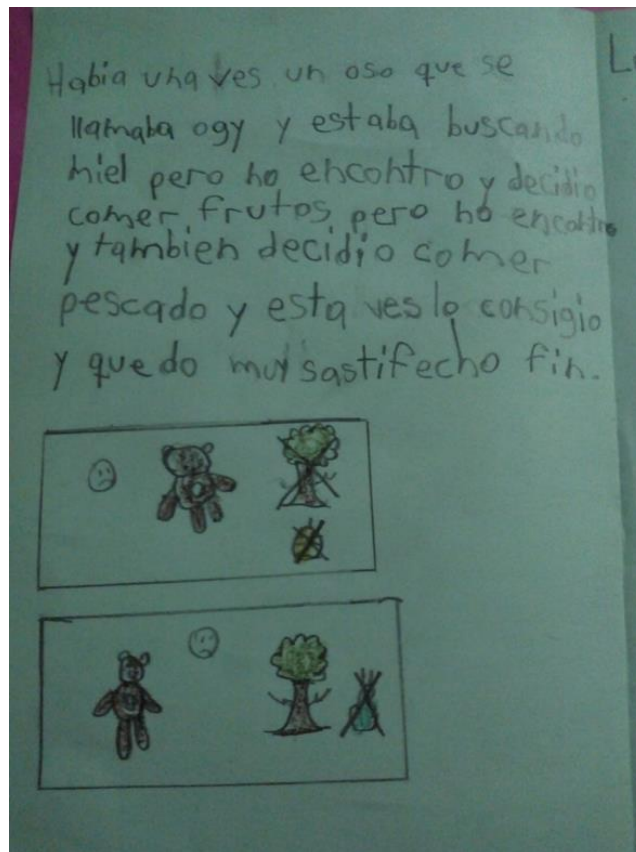 Habia una ves un oso que se
llamaba ogy y estaba buscando
miel pero no encontro y decidio
comer frutos pero no encontro
y tambien decidio comer
pescado y esta ves lo consigio
y quedo muy sastifecho fin.